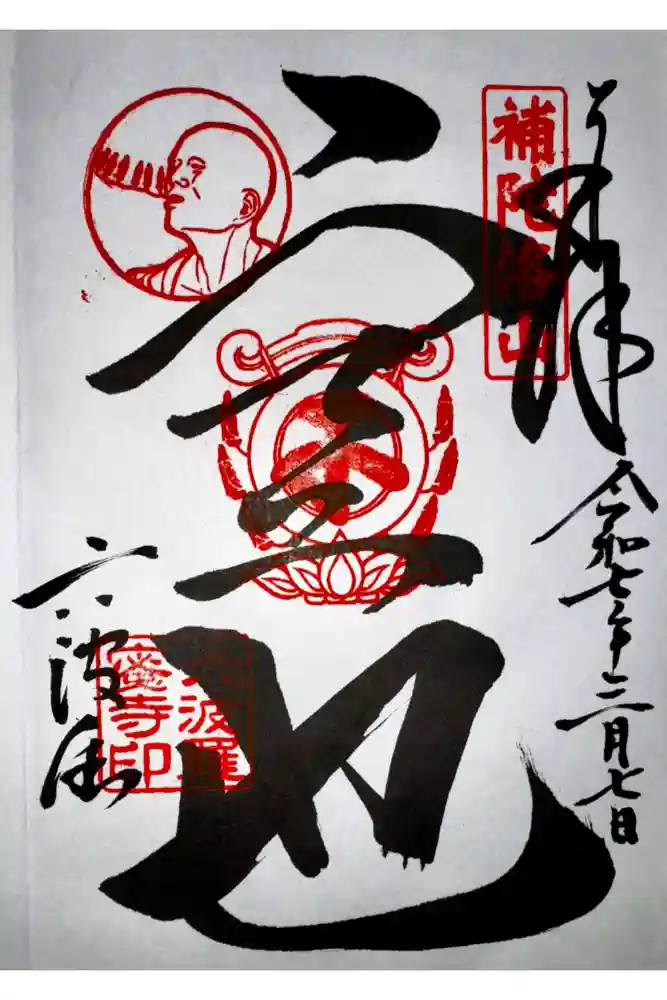 奉拝
補陀洛山
令和七年三月七日
空也
六波羅
六波羅
蜜寺印